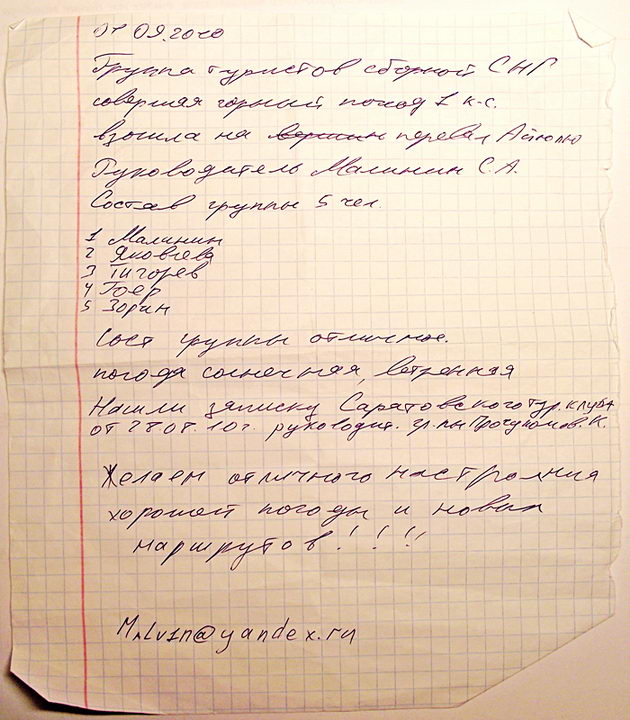 01 09.2010
Группа туристов сборной СНГ
совершая горный поход 1 к.с.
взошла на вершин перевал Айюлю
Руководитель Малинин С.А.
Состав группы 5 чел.
1 Малинин
2 Яковлева
3 Тигорев
4 Гоер
5 Зорин
Сост группы отличное.
погода солнечная, ветренная
Нашли записку Саратовского тур. клуба
от 28 08. 10 г. руководит. гр.
Желаем отличного настроения
хорошей погоды и новых
маршрутов!!!!
@yandex.ru